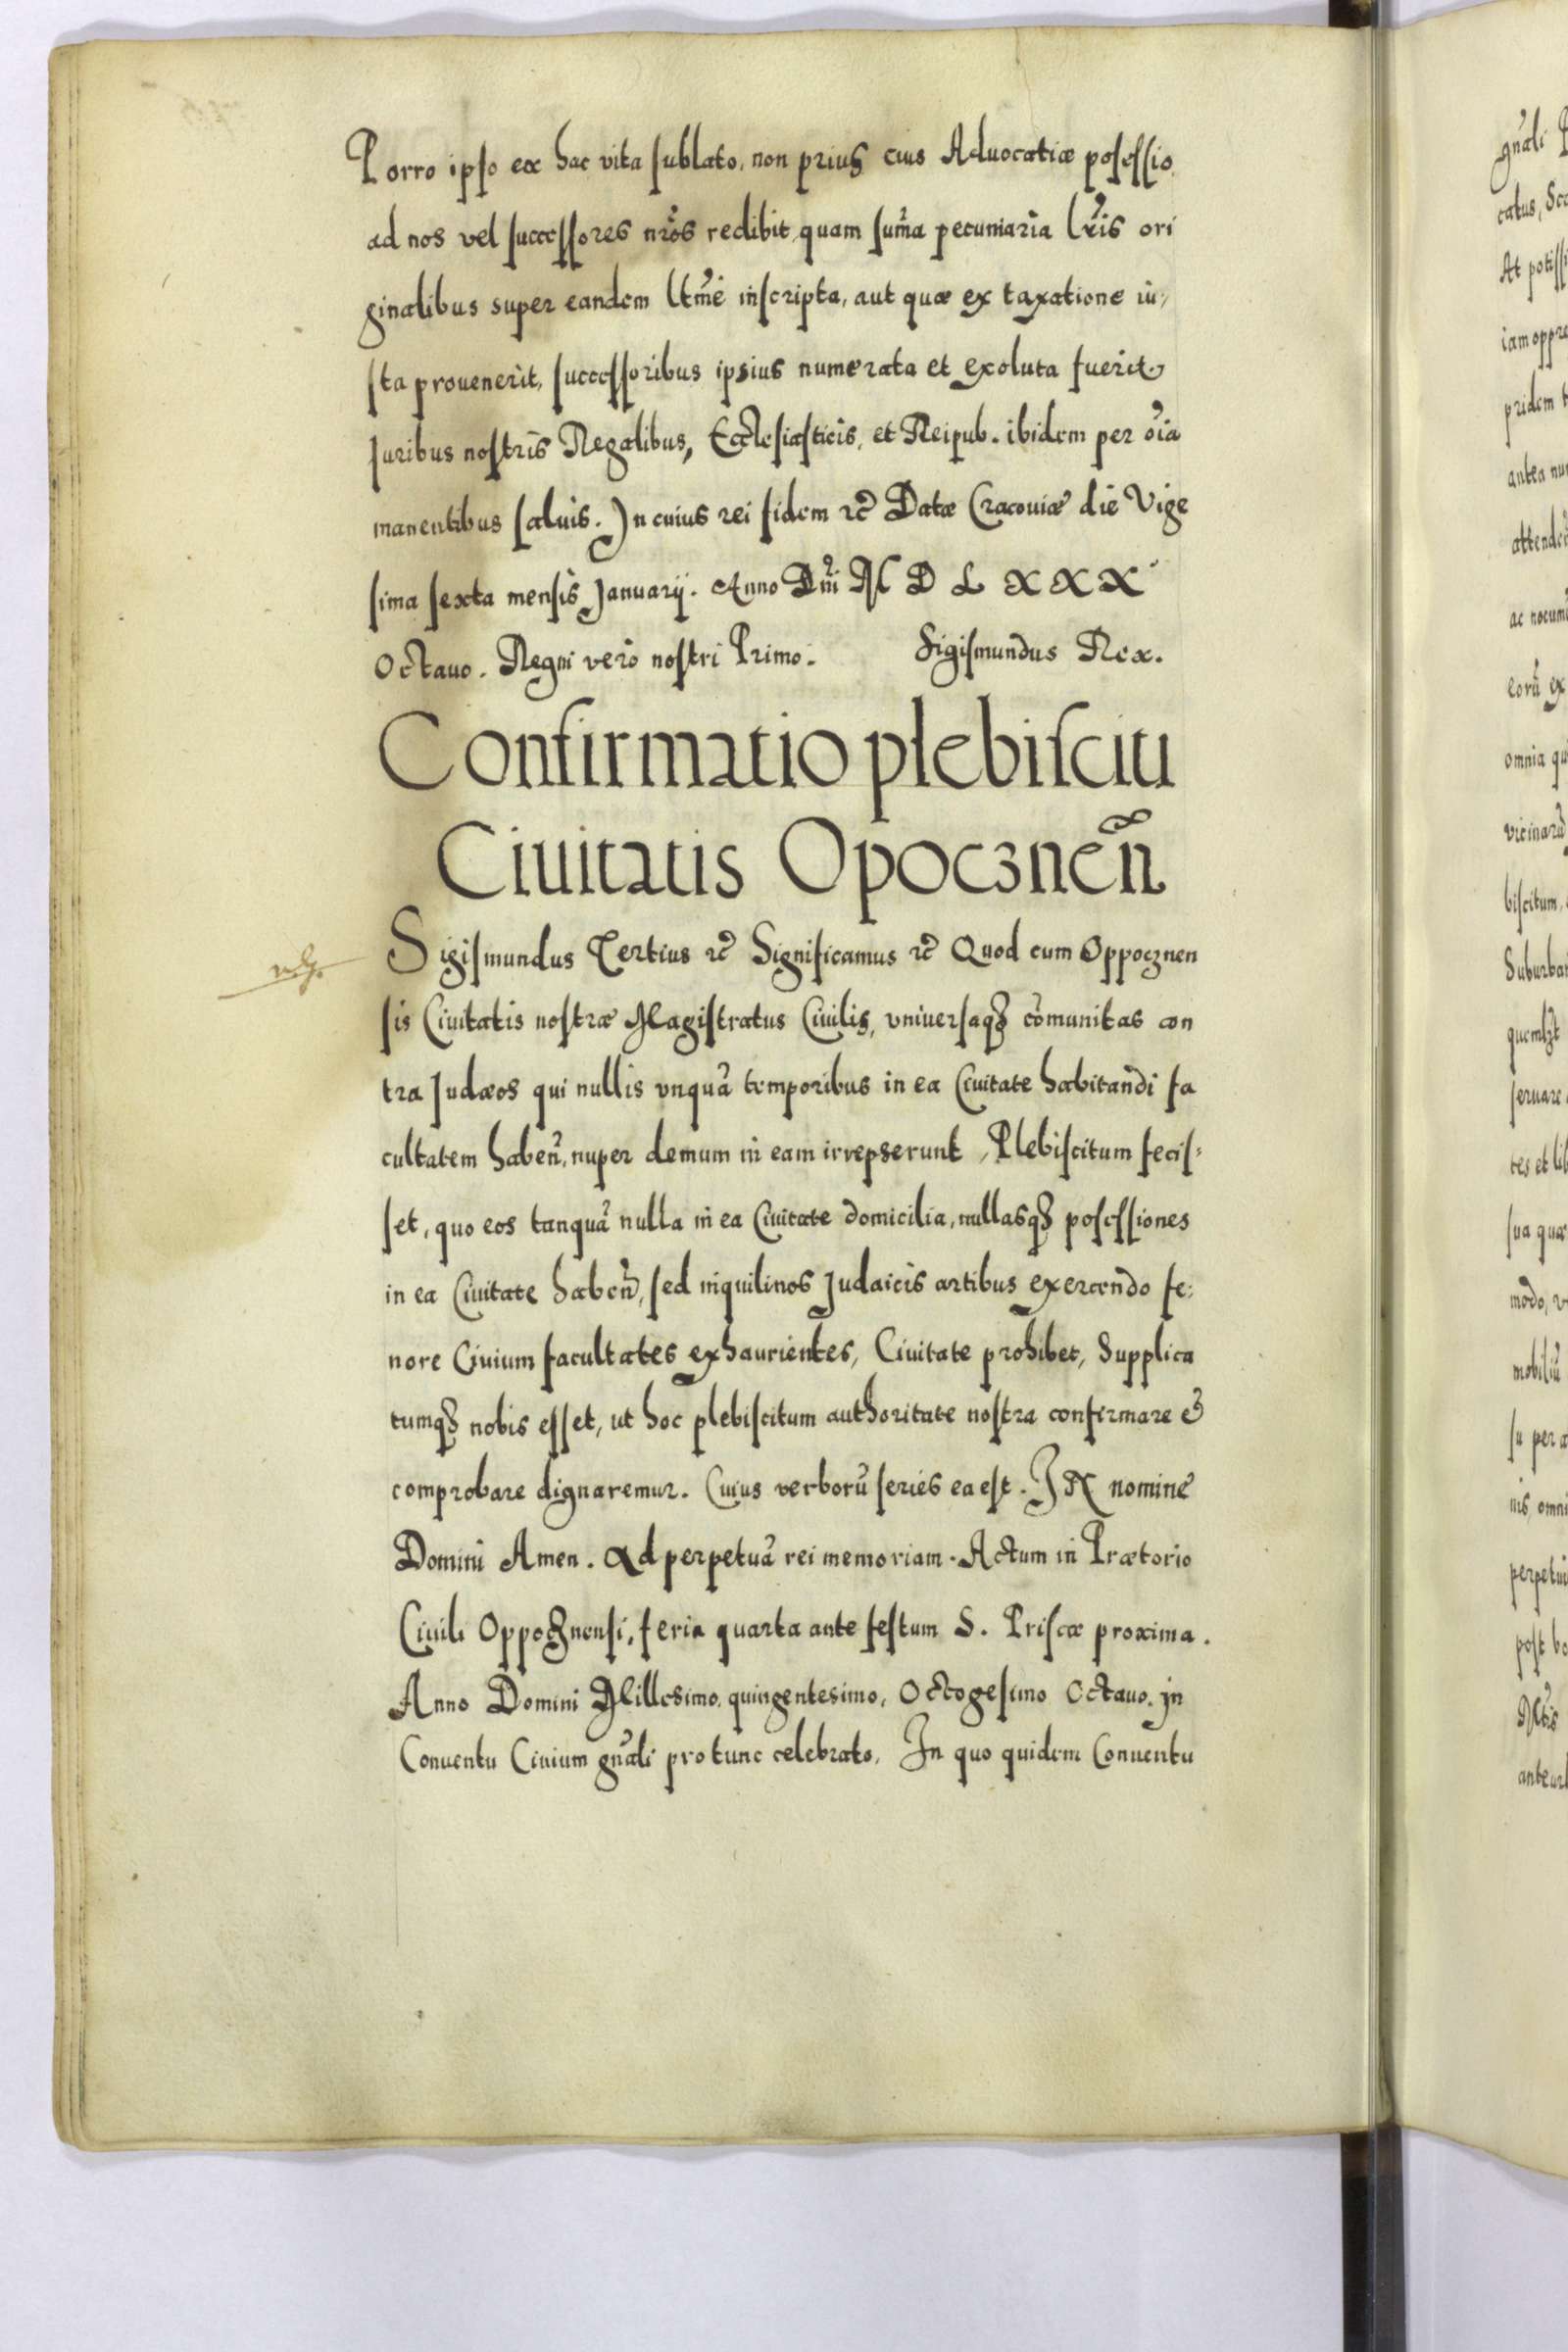 Porro ipso ex hac vita sublato, non prius eius Aduocatiæ possessio
ad nos vel successores nr̃os redibit, quam sum̃a pecuniaria lr̃is ori
ginalibus super eandem ltm̃e inscripta, aut quæ ex taxatione iu,
sta prouenerit, successoribus ipsius numerata et exoluta fuerit
Juribus nostris Regalibus, Ecclesiasticis, et Reipub. ibidem per oĩa
manentibus saluis. In cuius rei fidem &c̃ Datæ Cracouiæ die Vige
sima sexta mensis Januarij. Anno Dñi M D L X X X
Octauo. Regni vero nostri Primo. Sigismundus Rex.
Confirmatio plebisciti
Ciuitatis Opocznen̄
Sigismundus Tertius &c̃ Significamus &c̃ Quod cum Oppocznen
sis Ciuitatis nostræ Magistratus Ciuilis, vniuersaqȝ com̃unitas con
tra Judæos qui nullis vnquã temporibus in ea Ciuitate habitandi fa
cultatem haben̄, nuper demum in eam irrepserunt, Plebiscitum fecis-
set, quo eos tanquã nulla in ea Ciuitate domicilia, nullasqȝ possessiones
in ea Ciuitate haben̄, sed inquilinos Judaicis artibus exercendo fe:
nore Ciuium facultates exhaurientes, Ciuitate prohibet, Supplica
tumqȝ nobis esset, ut hoc plebiscitum authoritate nostra confirmare &
comprobare dignaremur. Cuius verborũ series ea est. IN nomine
Domini Amen. Ad perpetuã rei memoriam. Actum in Prætorio
Ciuili Oppocznensi, feria quarta ante festum S. Priscæ proxima.
Anno Domini Millesimo, quingentesimo, Octogesimo Octauo. in
Conuentu Ciuium gñali pro tunc celebrato, In quo quidem Conuentu
gñali
catus,
At
iam
pridem
antea
attender
ac
eorũ ex
omnia
vicinarũ
biscitum,
seruare
tes et
sua quæ
modo,
mobiliũ
su per
nis omni
post